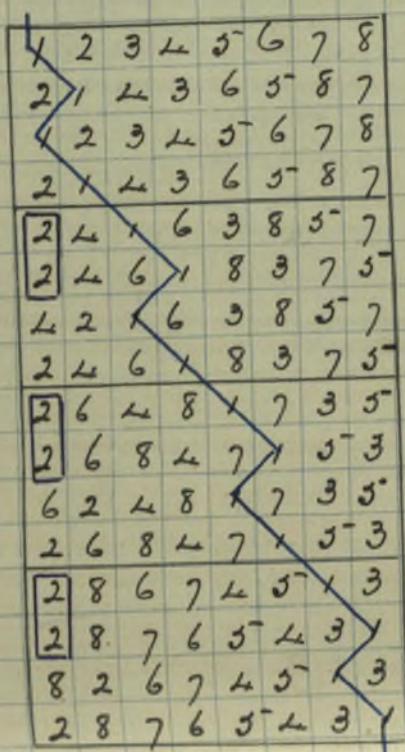 1 2 3 4 5 6 7 8
2 1 4 3 6 5 8 7
1 2 3 4 5 6 7 8
2 1 4 3 6 5 8 7
2 4 1 6 3 8 5 7
2 4 6 1 8 3 7 5
4 2 1 6 3 8 5 7
2 4 6 1 8 3 7 5
2 6 4 8 1 7 3 5
2 6 8 4 7 1 5 3
6 2 4 8 1 7 3 5
2 6 8 4 7 1 5 3
2 8 6 7 4 5 1 3
2 8 7 6 5 4 3 1
8 2 6 7 4 5 1 3
2 8 7 6 5 4 3 1